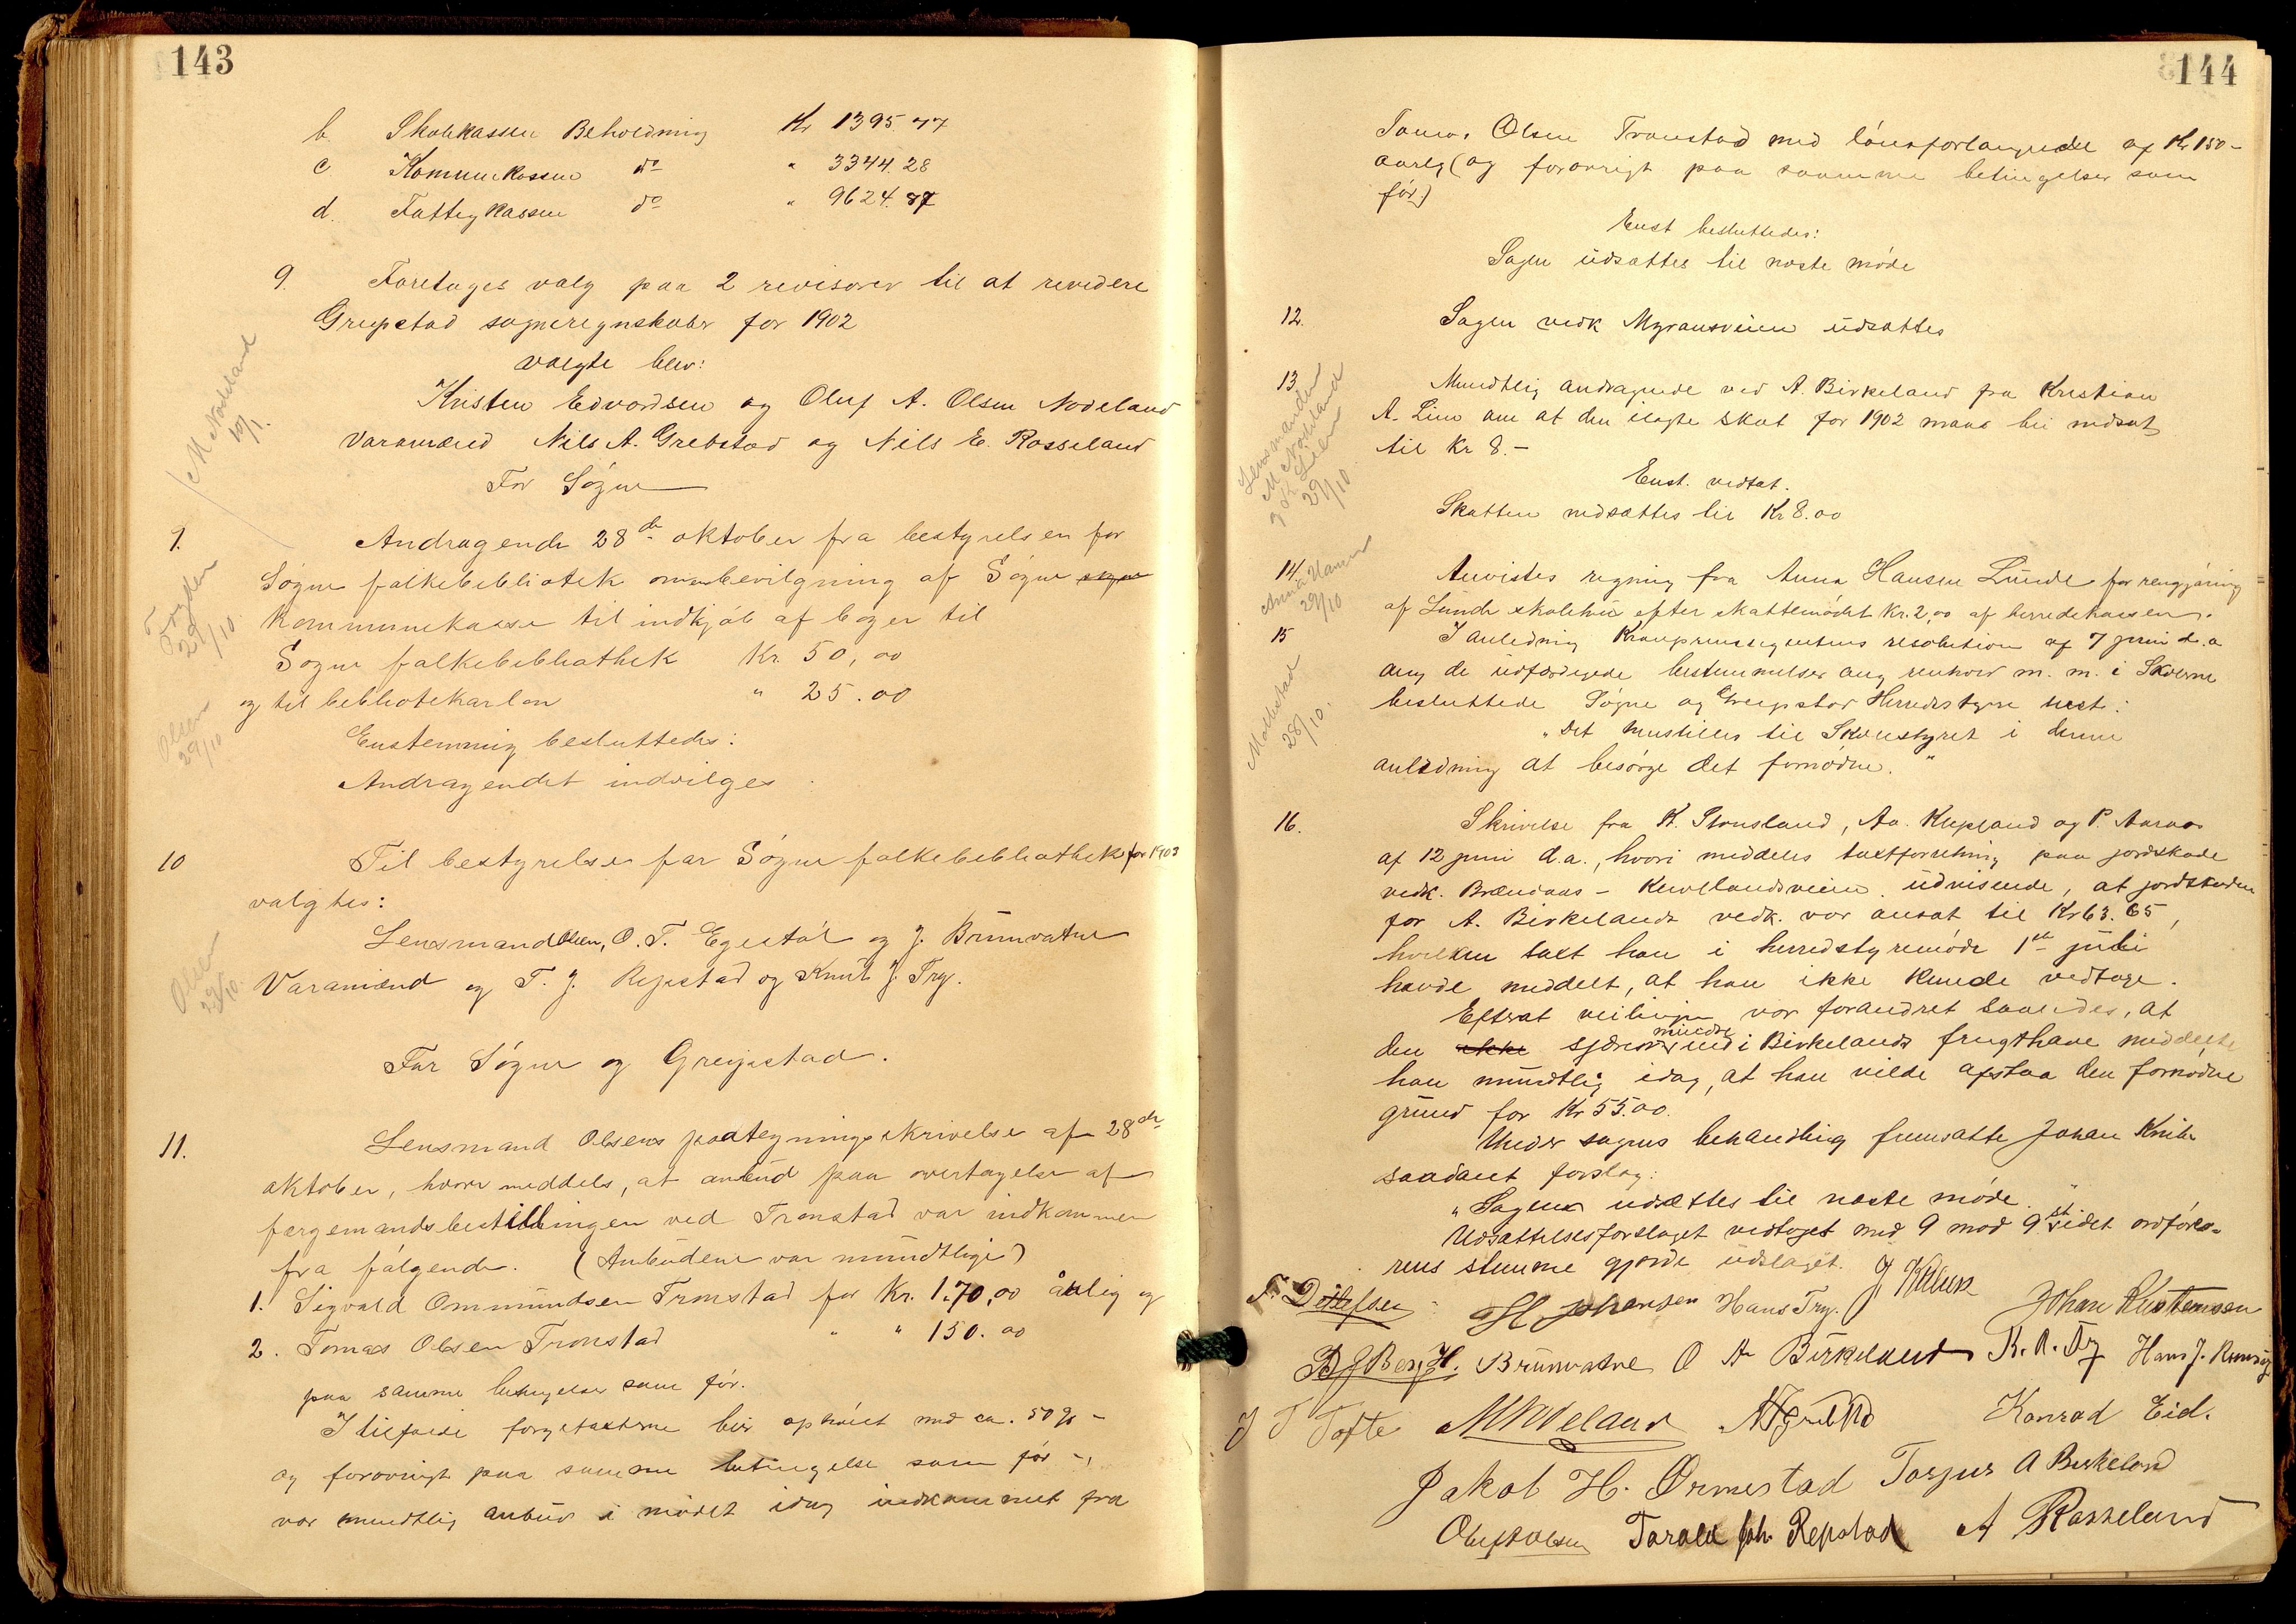 143
b. Skolekassen Beholdning Kr 1395.77
c Kommunekassen do " 3344.28
d. Fattigkassen do " 9624.87
9. Foretages valg paa 2 revisorer til at revidere
Greipstad sogneregnskaber for 1902
Valgte blev:
Kristen Edvardsen og Oluf A. Olsen Nodeland
Varamænd Nils A. Grebstad og Nils E. Rosseland
M Nodeland
10/1.
For Søgne
9. Andragende 28de oktober fra bestyrelsen for
Søgne folkebibliotek om bevilgning af Søgne sogne
kommunekasse til indkjøb af bøger til
Søgne folkebibliothek Kr. 50,00
og til bibliotekarløn " 25.00
Fogden
29/10.
Olsen
29/10
Enstemmig besluttedes:
Andragendet indvilges.
10 Til bestyrelse for Søgne folkebibliothek for 1903
valgtes:
Lensmand Olsen, O. T. Egestøl og J. Brunvatne
Varamænd og T. J. Repstad og Knut J. Try.
Olsen
29/10.
For Søgne og Greipstad.
11. Lensmand Olsens paategningsskrivelse af 28de
oktober, hvori meddels, at anbud paa overtagelse af
færgemandsbestillingen ved Tronstad var indkommen
fra følgende. (Anbudene var mundtlige)
1. Sigvald Ommundsen Tronstad for Kr. 170,00 årlig og
2. Tomas Olsen Tronstad " " 150.00
paa samme betingelser som før.
I tilfælde færgetaxterne blir ophøiet med ca. 50 % -
og forøvrigt paa samme betingelse som før -,
var mundtlig anbud i mødet idag indkommet fra
144
Tomas Olsen Tronstad med lønsforlangende af Kr 150-
aarlig (og forøvrigt paa samme betingelser som
før)
Enst besluttedes:
Sagen udsættes til næste møde
12. Sagen vedk Myransveien udsættes
13. Mundtlig andragende ved A. Birkeland fra Kristian
A. Lien om at den ilagte skat for 1902 maa bli nedsat
til Kr 8.-
Lensmanden
M Nodeland
og K. Lien
29/10.
Enst. vedtat.
Skatten nedsættes til Kr 8.00
14. Anvistes regning fra Anna Hansen Lunde for rengjøring
af Lunde skolehus efter skattemødet Kr. 2,00 af herredskassen.
Anna Hansen
29/10
15 I anledning Kronprinsregentens resolution af 7 juni d.a
ang de udfærdigede bestemmelser ang renhold m. m. i Skolerne
besluttede Søgne og Greipstad Herredsstyre enst:
"Det henstilles til Skolestyret i denne
anledning at besørge det fornødne."
28/10.
16. Skrivelse fra K. Stousland, Aa. Klepland og P. Aaraas
af 12 juni d.a., hvori meddeles taxtforretning paa jordskade
vedk. Brændaas - Kivlelandsveien udvisende, at jordskaden
for A. Birkelands vedk. var ansat til Kr 63.65,
hvilken taxt han i herredstyremøde 1ste juli
havde meddelt, at han ikke kunde vedtage.
Efterat veilinjen var forandret saaledes, at
den ikke skjærer mindre ind i Birkelands frugthave meddelte
han mundtlig idag, at han vilde afstaa den fornødne
grund for Kr 55.00.
Under sagens behandling fremsatte Johan Kristensen
saadant forslag:
"Sagen udsættes til næste møde."
Udsættelsesforslaget vedtoges med 9 mod 9 st. idet ordføre-
rens stemme gjorde udslaget.
N. Ditlefsen H Johansen Hans Try. Johan Kristensen
B J Berg H. Brunvatne O A Birkeland K. A. Try
J T Tofte M Nodeland Konrad Eid.
Jakob H. Ormestad Torjus A Birkeland
Oluf A Olsen Torald Joh. Repstad A Rosseland